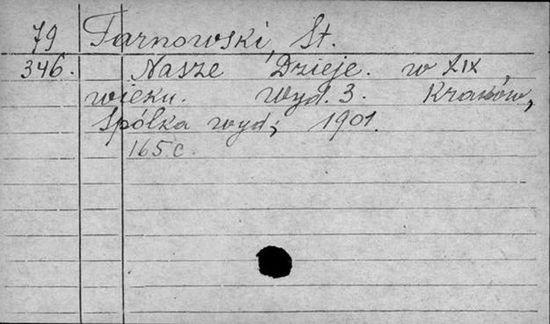 79 Tarnowski, St.
346. Nasze Dzieje. w XIX
wieku. Wyd. 3. Kraków,
Spółka wyd; 1901.
165 c.